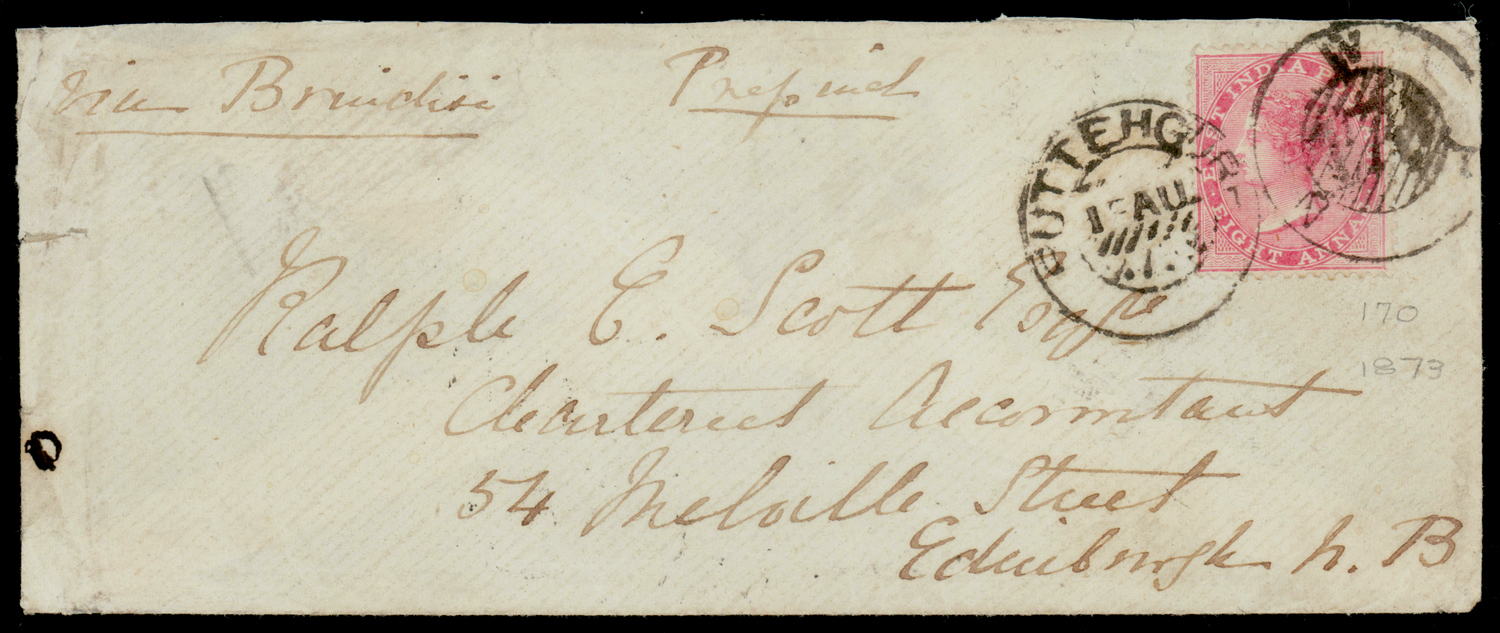 via Brindisi Prepaid
EAST INDIA
EIGHT ANNA
FUTTEHGUR
1 AU
Ralph E. Scott Esqre
Chartered Accountant
54 Melville Street
Edinburgh N. B
170
1873